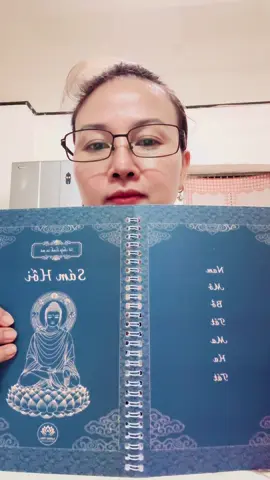 Sám Hối
Nam
Mô
Bồ
Tát
Ma
Ha
Tát